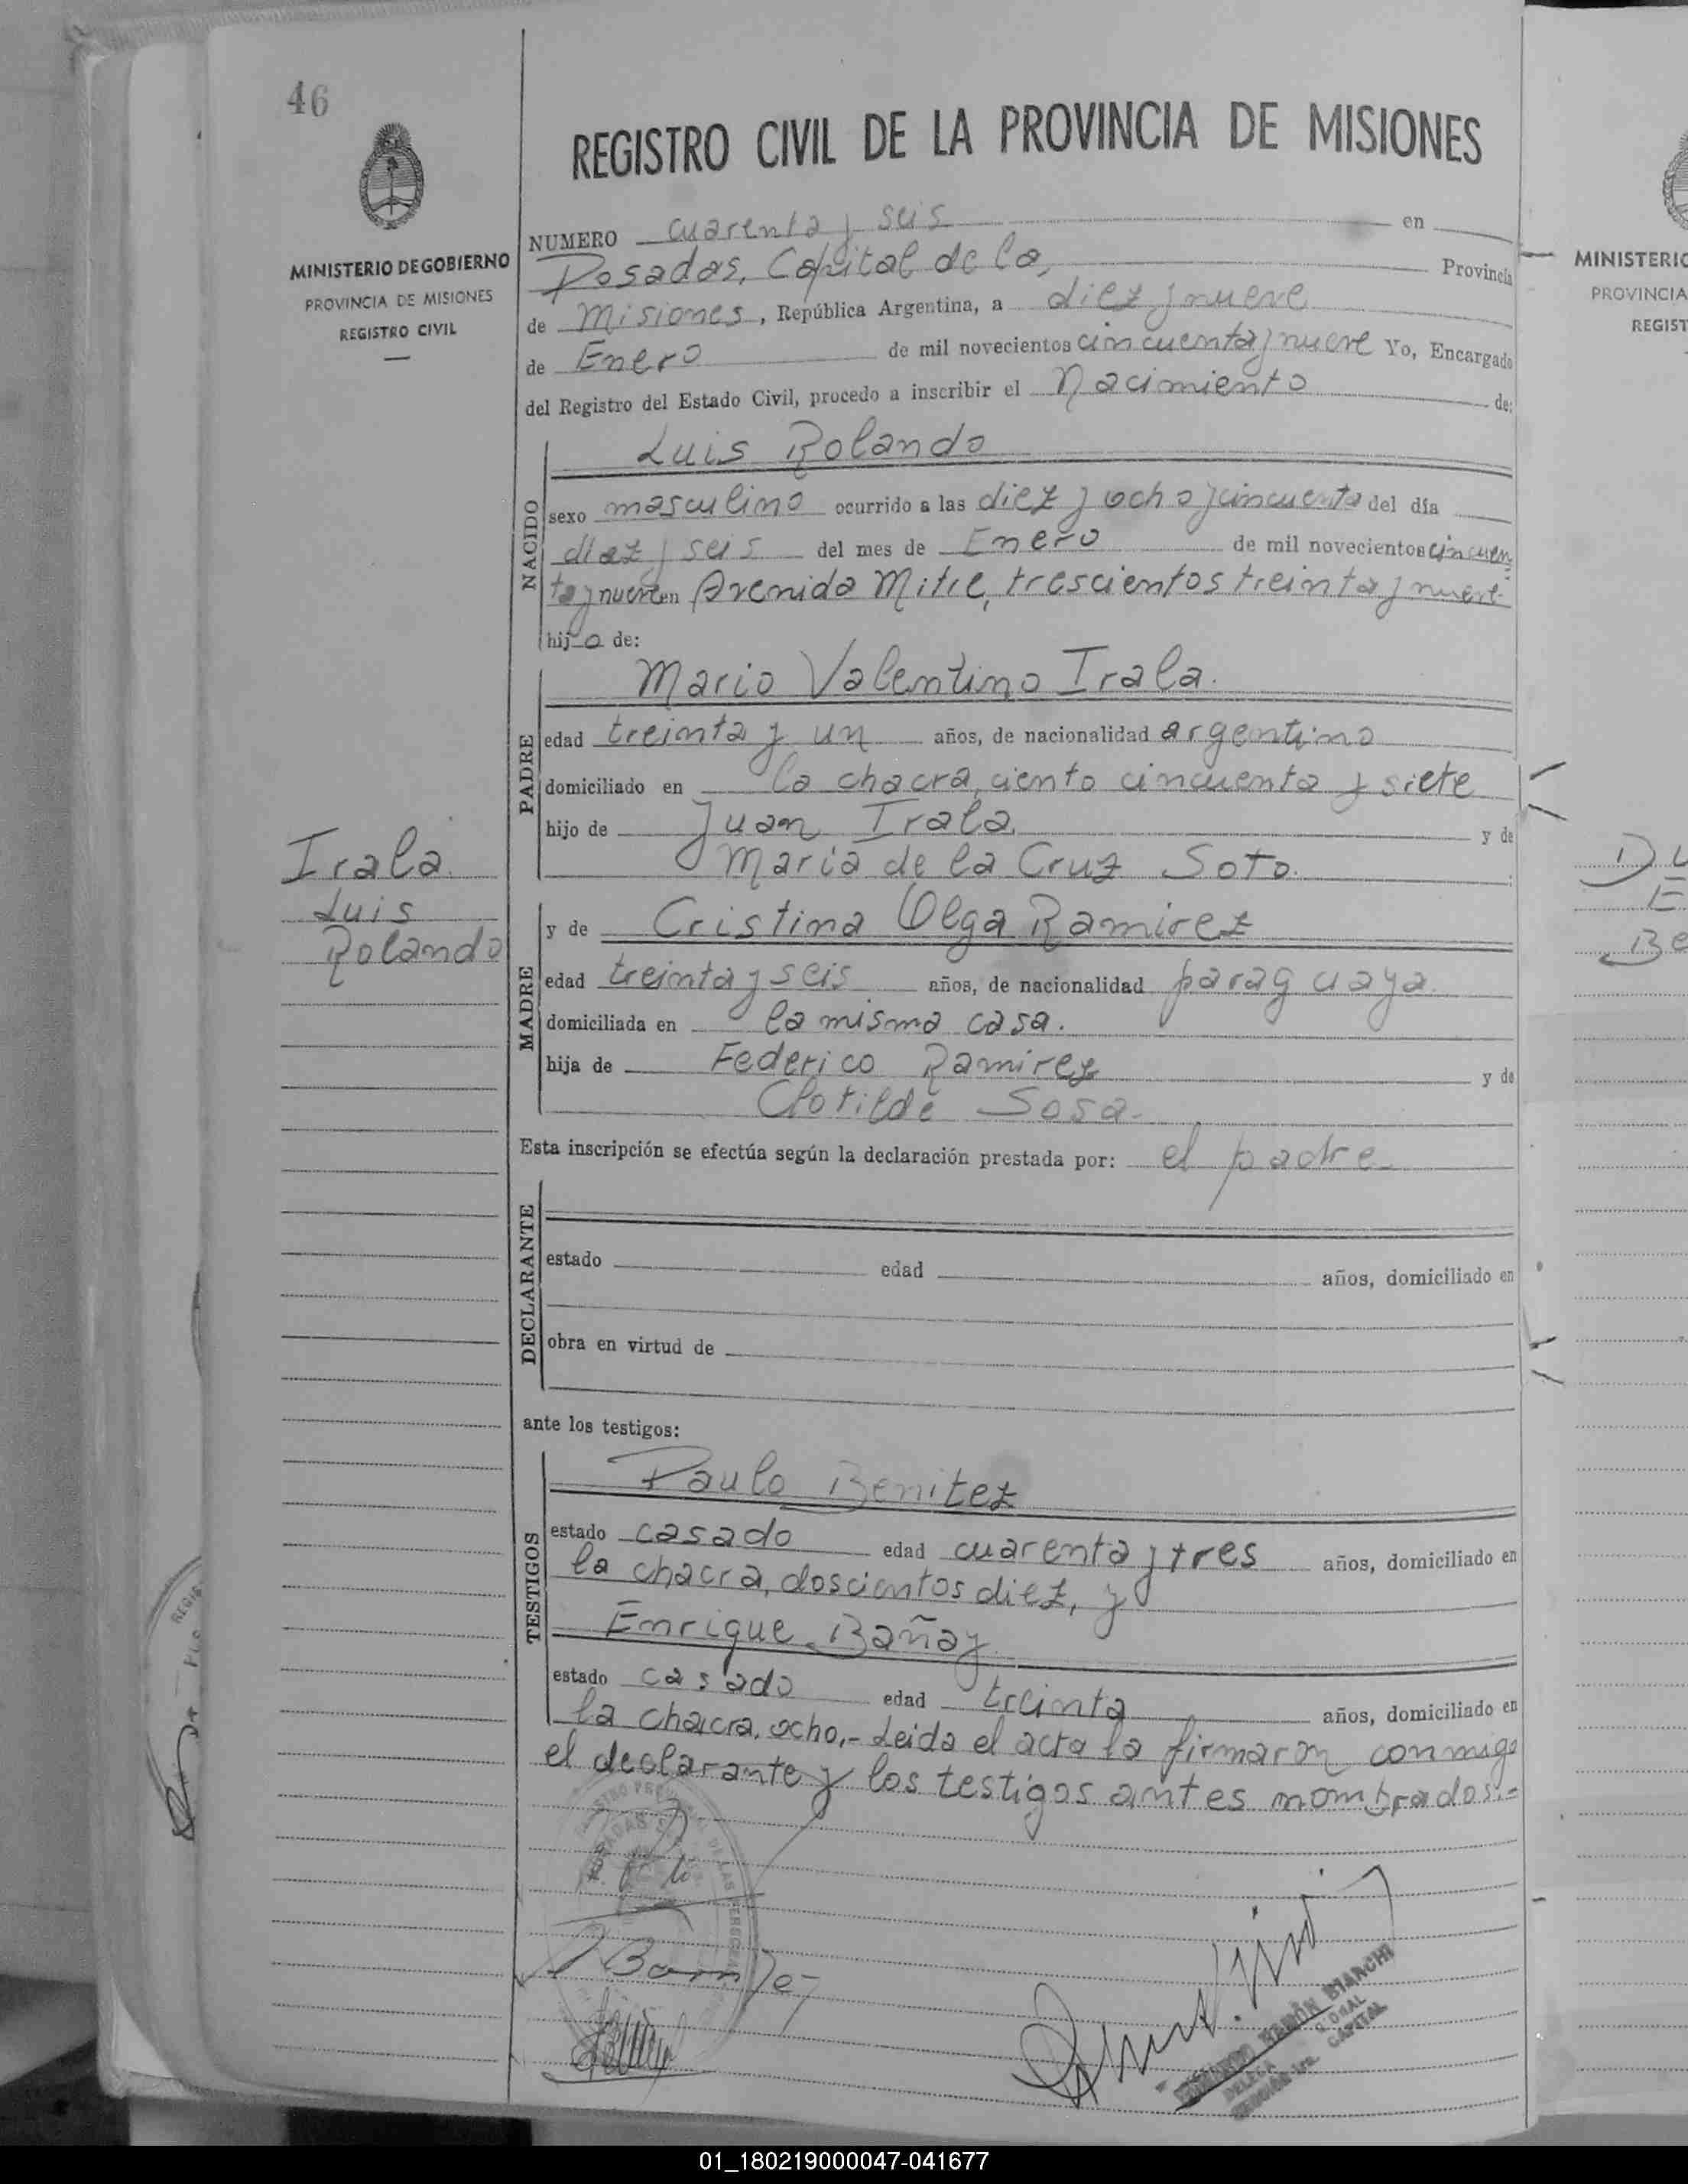 46
REGISTRO CIVIL DE LA PROVINCIA DE MISIONES
MINISTERIO DE GOBIERNO
PROVINCIA DE MISIONES
REGISTRO CIVIL
NUMERO cuarenta y seis en
Posadas, Capital de la, Provincia
de Misiones, República Argentina, a diez y nueve
de Enero de mil novecientos cincuenta y nueve Yo, Encargado
del Registro del Estado Civil, procedo a inscribir el Nacimiento de:
NACIDO
Luis Rolando
sexo masculino ocurrido a las diez y ocho y cincuenta del día
diez y seis del mes de Enero de mil novecientos cincuen
ta y nueve en Avenida Mitre, trescientos treinta y nueve
hijo de:
PADRE
Mario Valentino Irala.
edad treinta y un años, de nacionalidad argentino
domiciliado en la chacra, ciento cincuenta y siete
hijo de Juan Irala, y de
Maria de la Cruz Soto.
Irala
Luis
Rolando
MADRE
y de Cristina Olga Ramirez
edad treinta y seis años, de nacionalidad paraguaya
domiciliada en la misma casa.
hija de Federico Ramirez y de
Clotilde Sosa.
Esta inscripción se efectúa según la declaración prestada por: el padre
DECLARANTE
estado edad años, domiciliado en
obra en virtud de
ante los testigos:
TESTIGOS
Paulo Benitez
estado casado edad cuarenta y tres años, domiciliado en
la chacra, doscientos diez, y
Enrique Bañay
estado casado edad treinta años, domiciliado en
la chacra, ocho,- Leida el acta la firmaron conmigo
el declarante y los testigos antes nombrados.-
RAMÓN BIANCHI
CAPITAL
MINISTERIO
PROVINCIA
REGIST
Be
01_180219000047-041677